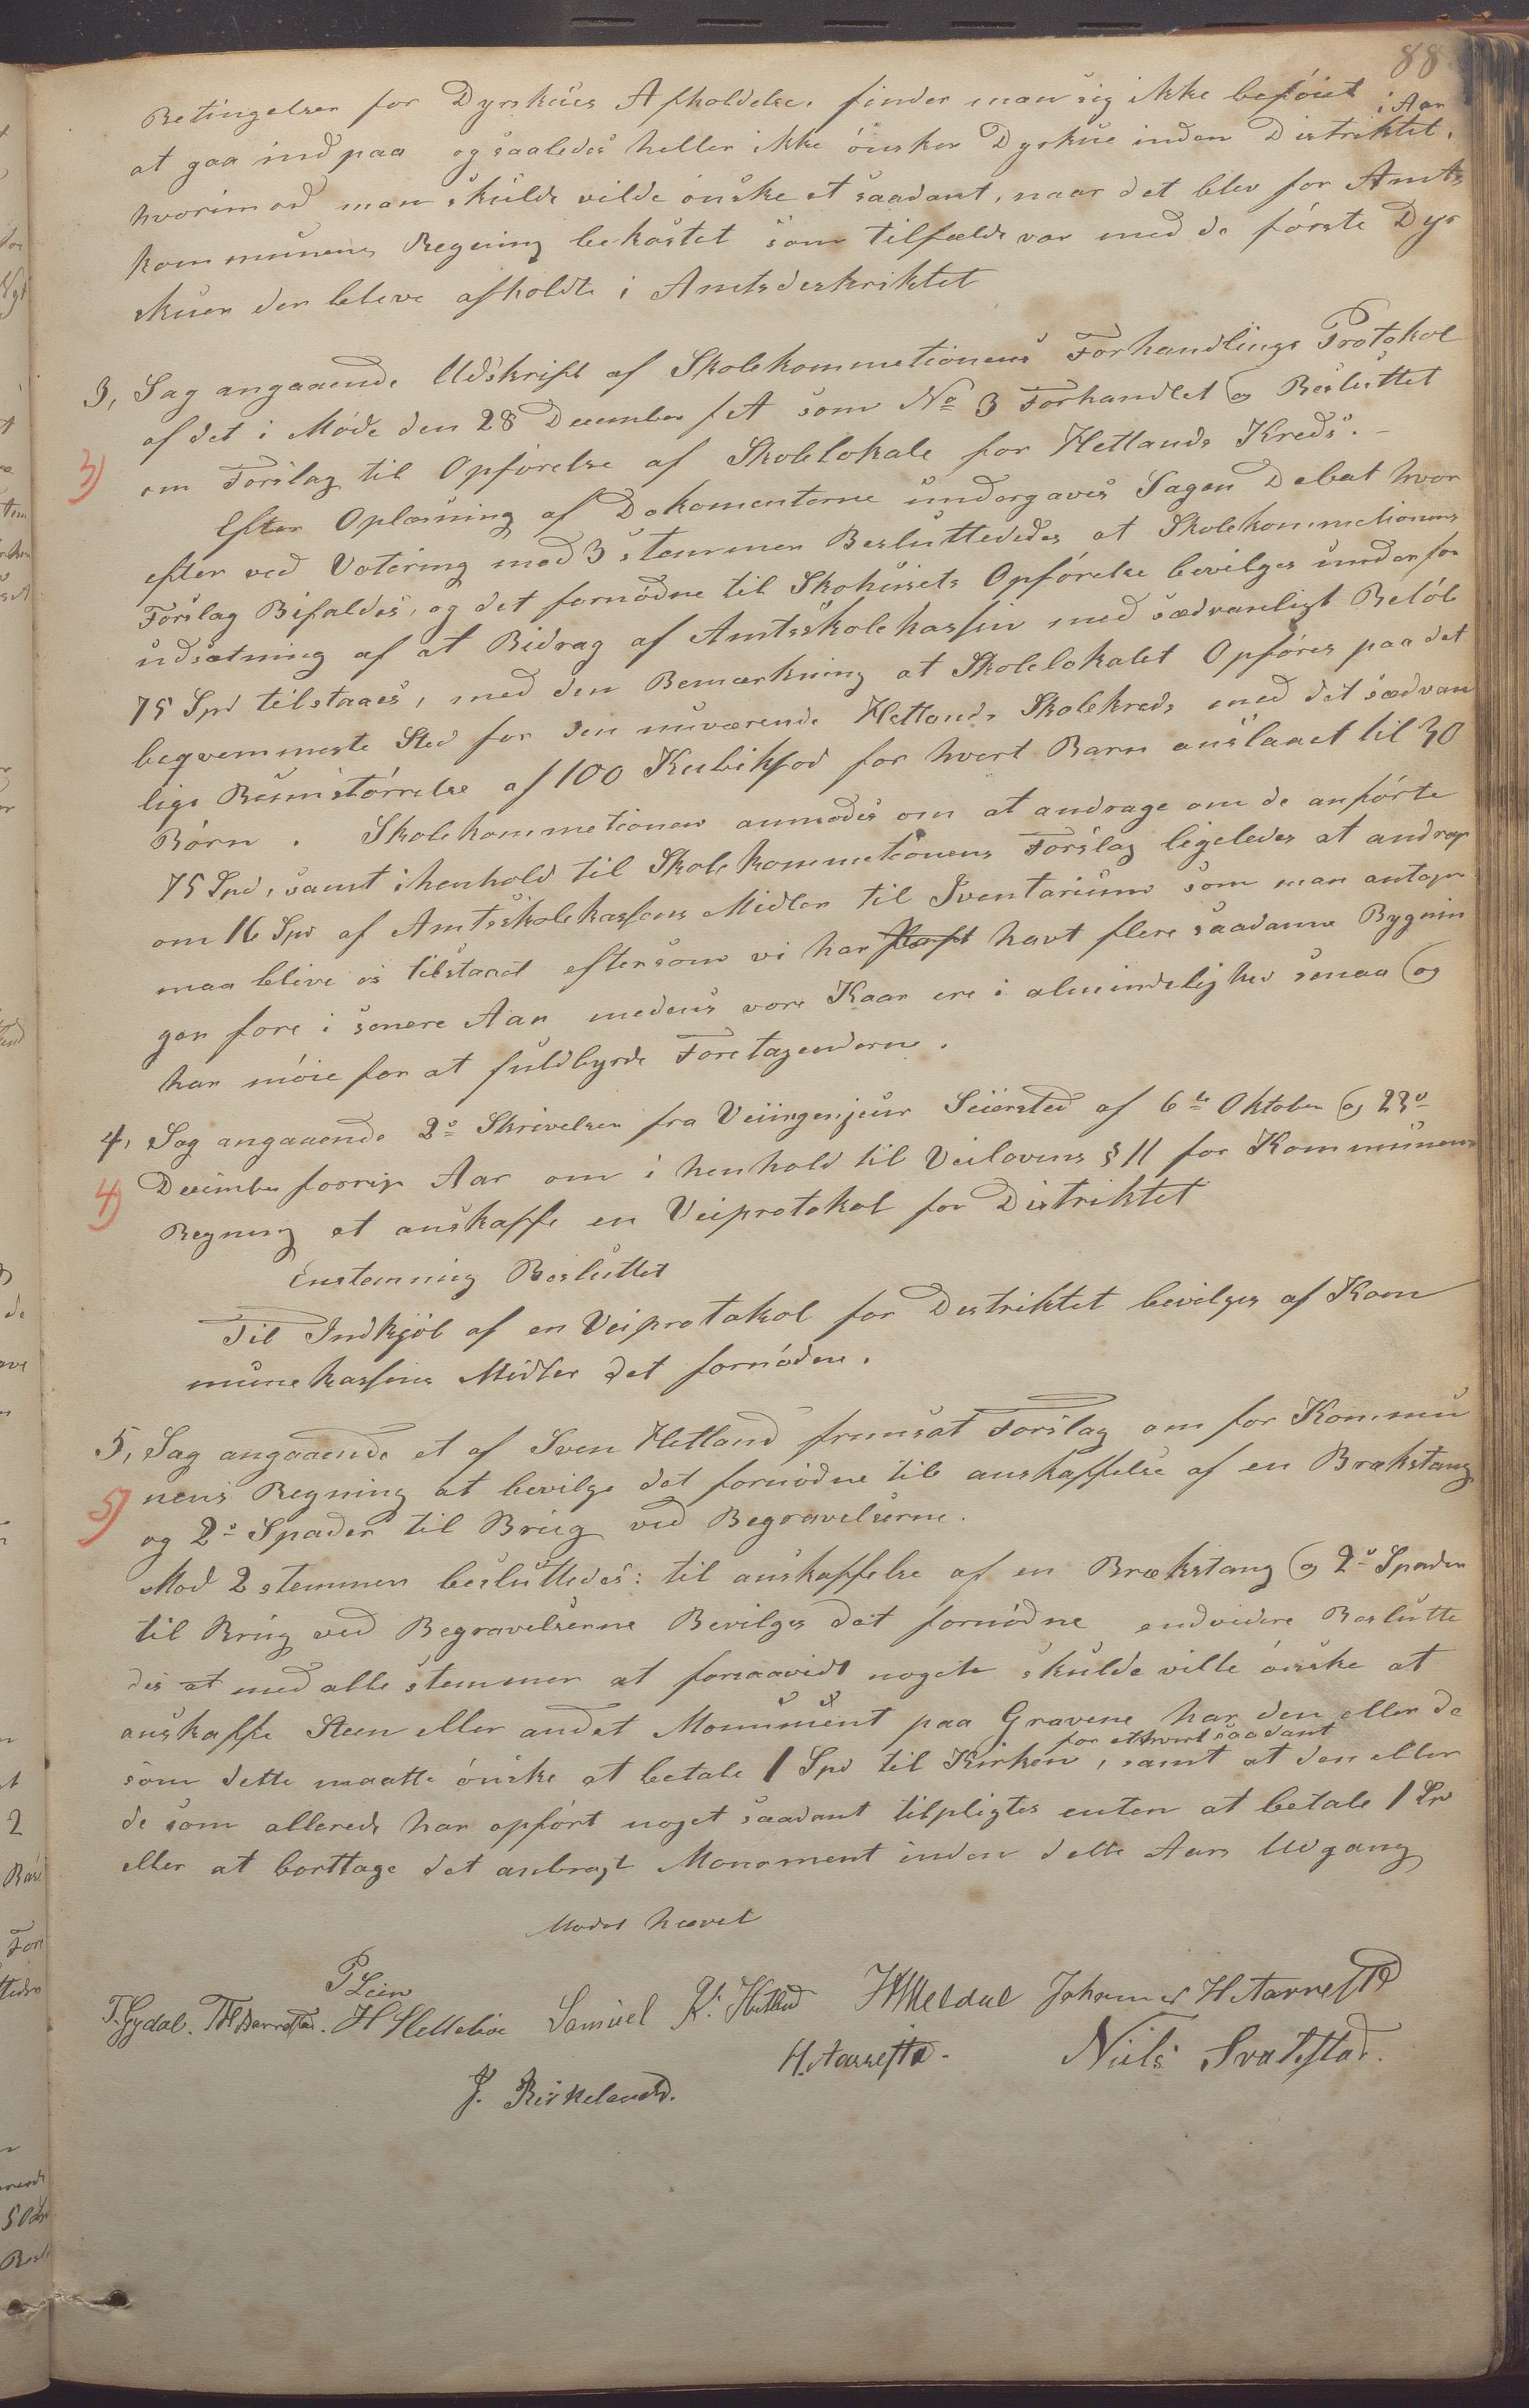 88
Betingelser for Dyrskues Afholdelse, finder man sig ikke beføiet
at gaa ind paa og saaledes heller ikke ønsker Dyrskue inden Distriktet i Aar
hvorimod man skulde vilde ønske et saadant, naar det blev for Amts
kommunens Regning bekostet som tilfælde var med de første Dyr
skuer der bleve afholdte i Amtsdeskriktet
3, Sag angaaende Udskrift af Skolekommetionens Forhandlings Protokol
af det i Møde den 28 December f A som No 3 Forhandlet og Besluttet
3)
om Forslag til Opførelse af Skolelokale for Hetlands Kreds. -
Efter Oplæsning af Dokomenterne undergaves Sagen Debat hvor
efter ved Votering mod 3 stemmer Besluttededes at Skolekommetionens
Forslag Bifaldes, og det fornødne til Skohusets Opførelse bevilges under for
udsætning af at Bidrag af Amtsskolekassen med sædvanligt Beløb
75 Spd tilstaaes, med den Bemærkning at Skolelokalet Opføres paa det
beqvemmeste Sted for den nuværende Hetlands Skolekreds med det sædvan
lige Rumstørrelse af 100 Kubikfod for hvert Barn anslaaet til 30
Børn. Skolekommetionen anmodes om at andrage om de anførte
75 Spd, samt i henhold til Skolekommetionens Forslag ligeledes at andrage
om 16 Spd af Amtsskolekassens Midler til Iventarium som man antager
maa blive os tilstaaet eftersom vi har havt flere saadanne Bygnin
ger fore i senere Aar medens vore Kaar ere i almindelighed smaa og
har møie for at fuldbyrde Foretagenderne.
4, Sag angaaende 2de Skrivelser fra Veiingenjeur Seiersted af 6te Oktober og 23de
4)
December forrige Aar om i henhold til Veilovens § 11 for Kommunens
Regning at anskaffe en Veiprotokol for Distriktet
Enstemmig Besluttet
Til Indkjøb af en Veiprotokol for Destriktet bevilges af Kom
munekassens Midler det fornødne.
5, Sag angaaende et af Sven Hetland fremsat Forslag om for Kommu
nens Regning at bevilge det fornødne til anskaffelse af en Brækstang
5)
og 2de Spader til Brug ved Begravelserne.
Mod 2 stemmer besluttedes: til anskaffelse af en Brækstang og 2de Spader
til Brug ved Begravelserne Bevilges det fornødne endvidere Beslutte
des at med alle stemmer at forsaavidt nogen skulde ville ønske at
anskaffe Steen eller andet Monument paa Gravene har den eller de
som dette maatte ønske at betale 1 Spd til Kirken for ethvert saadant, samt at den eller
de som allerede har opført noget saadant tilpligtes enten at betale 1 Sp
eller at borttage det anbragt Monoment inden dette Aars Udgang
Mødet hævet
P Lein
T. Gydal. H Hellelioe Samuel K. Hetland Johannes H Aarrestad
J. Birkeland. H. Aarrestad. Niils Svalestad.